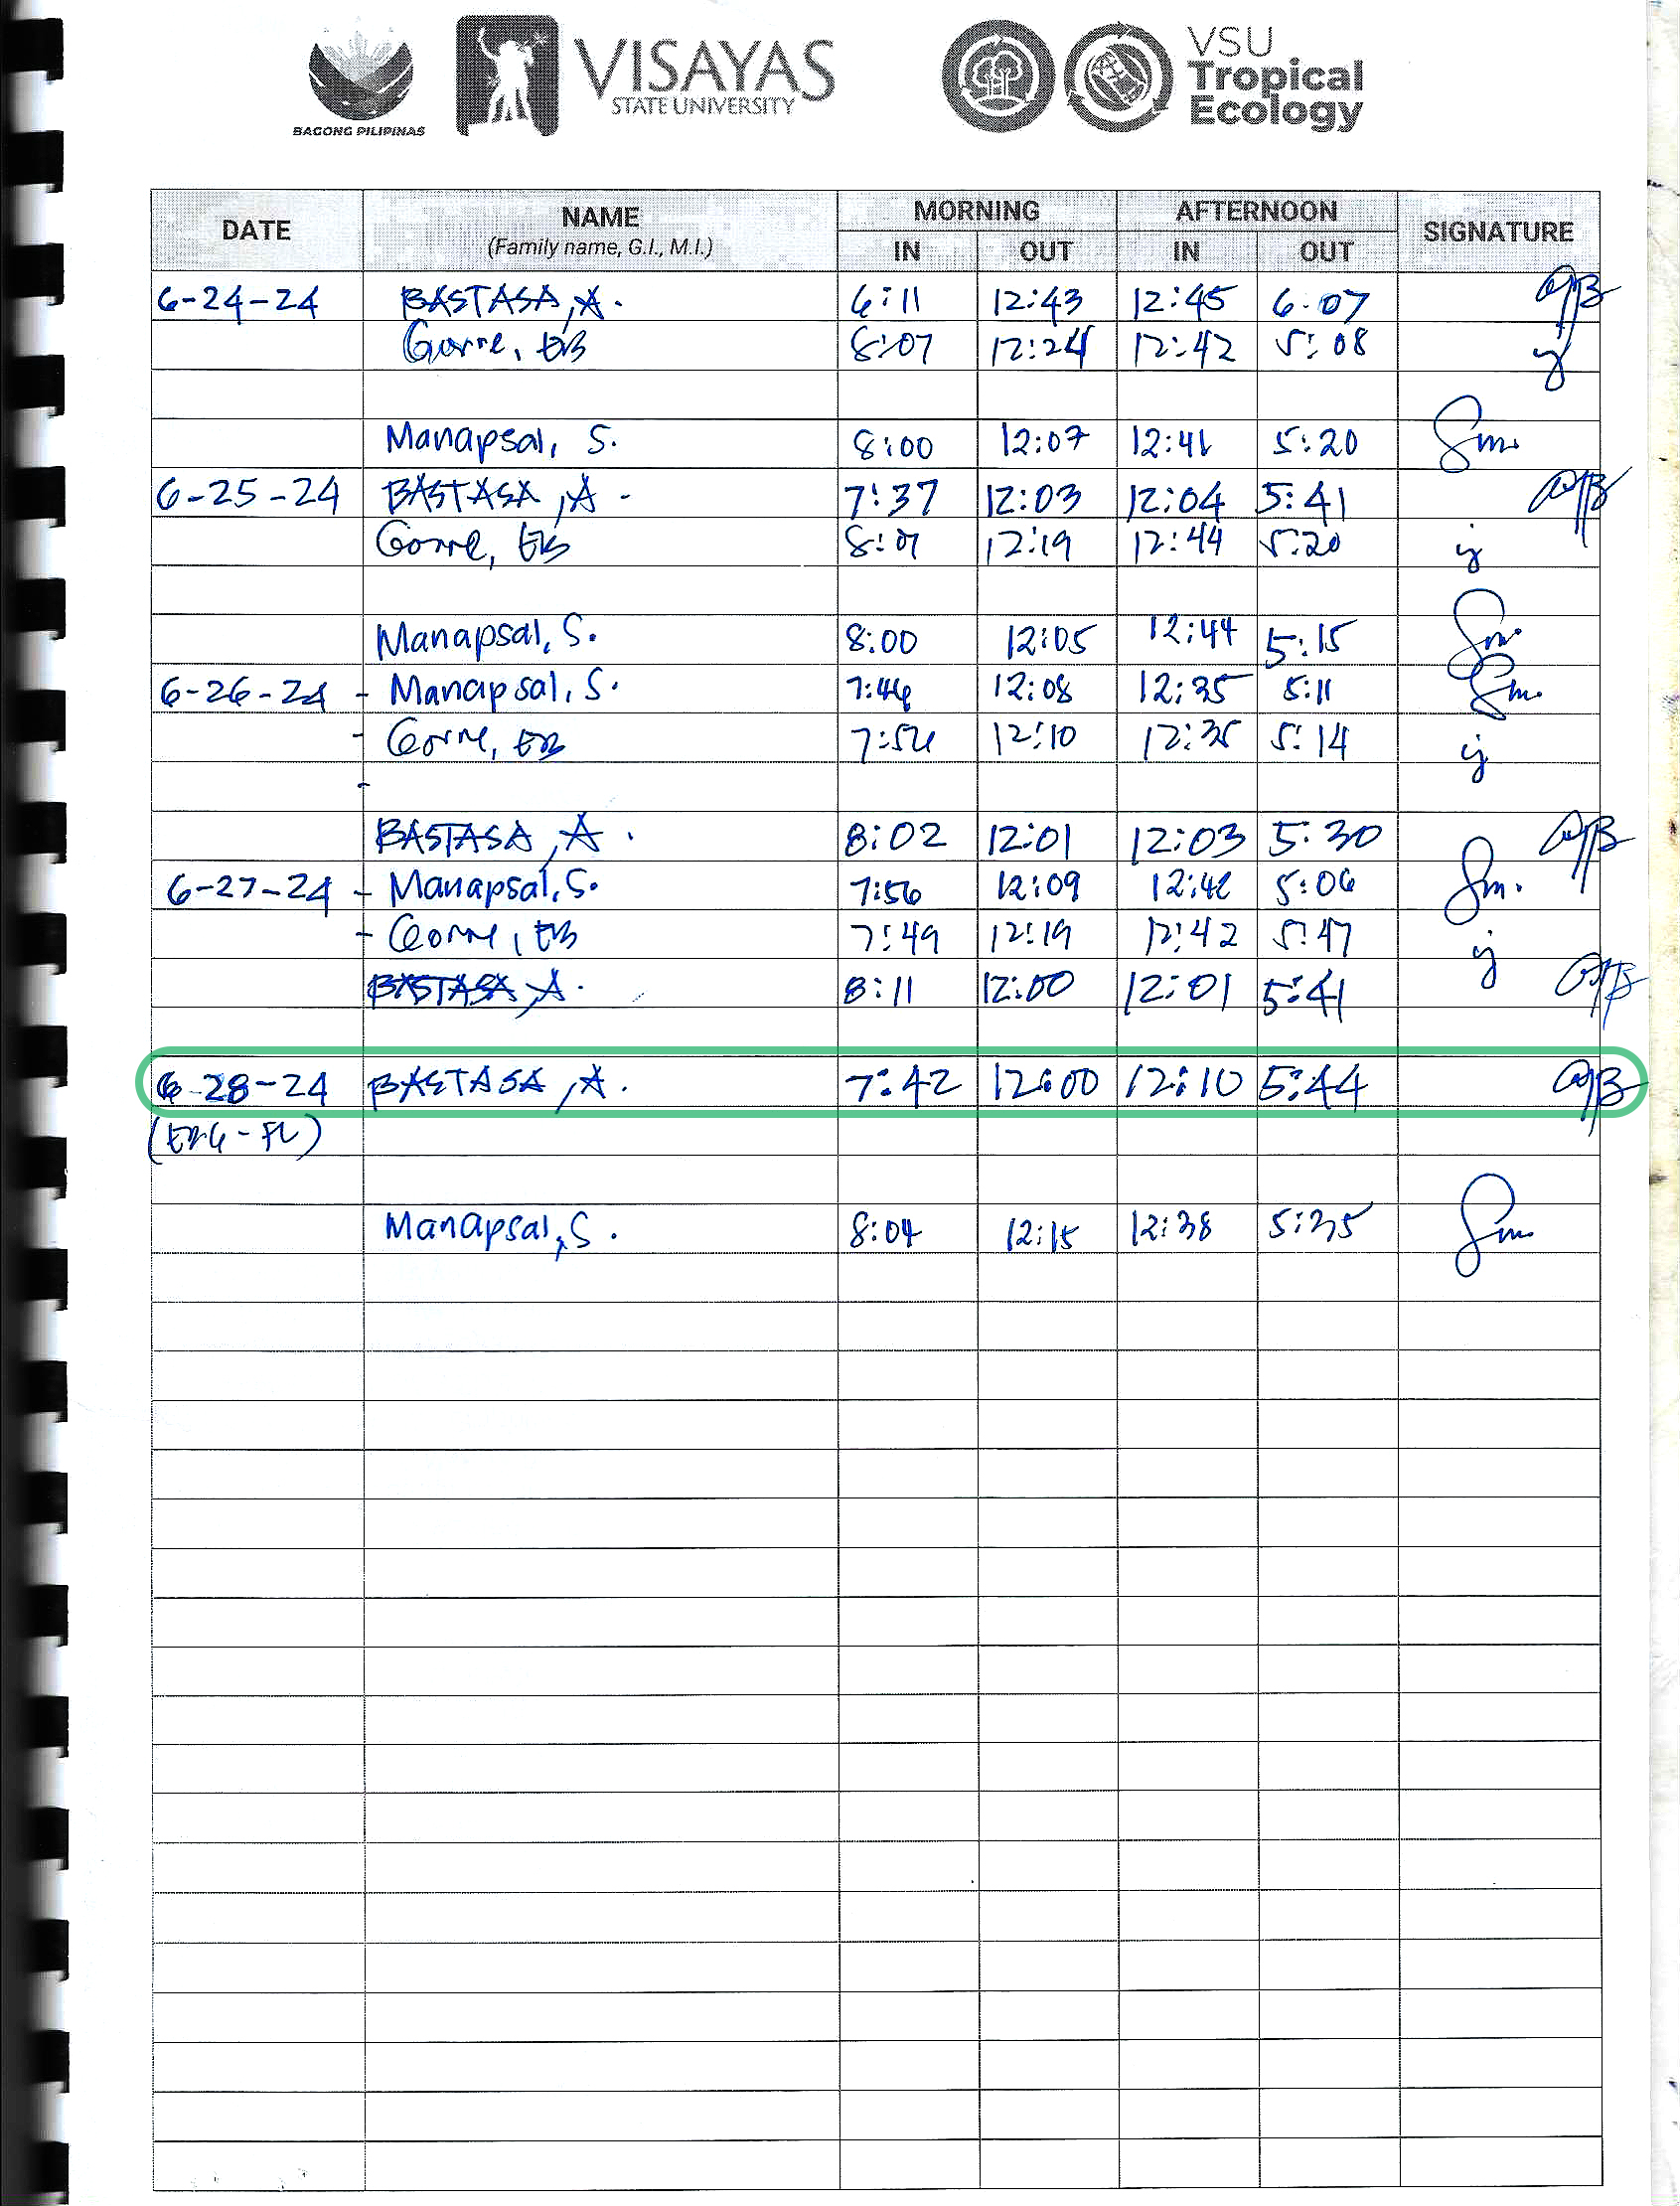 BAGONG PILIPINAS
VISAYAS
STATE UNIVERSITY
VSU
Tropical
Ecology
DATE NAME (Family name, G.I., M.I.) MORNING AFTERNOON SIGNATURE
IN OUT IN OUT
6-24-24 BASTASA, A. 6:11 12:43 12:45 6:07
Gorre, EB 8:07 12:24 12:42 5:08
Manapsal, S. 8:00 12:07 12:41 5:20 Sm.
6-25-24 BASTASA, A. 7:37 12:03 12:04 5:41
Gorre, EB 8:01 12:19 12:44 5:20
Manapsal, S. 8:00 12:05 12:44 5:15 Sm.
6-26-24 - Manapsal, S. 7:46 12:08 12:35 5:11 Sm.
- Gorre, EB 7:54 12:10 12:35 5:14
-
BASTASA, A. 8:02 12:01 12:03 5:30
6-27-24 - Manapsal, S. 7:56 12:09 12:42 5:06 Sm.
- Gorre, EB 7:49 12:19 12:42 5:47
BASTASA, A. 8:11 12:00 12:01 5:41
6-28-24 BASTASA, A. 7:42 12:00 12:10 5:44
(EBG - FL)
Manapsal, S. 8:04 12:15 12:38 5:35 Sm.